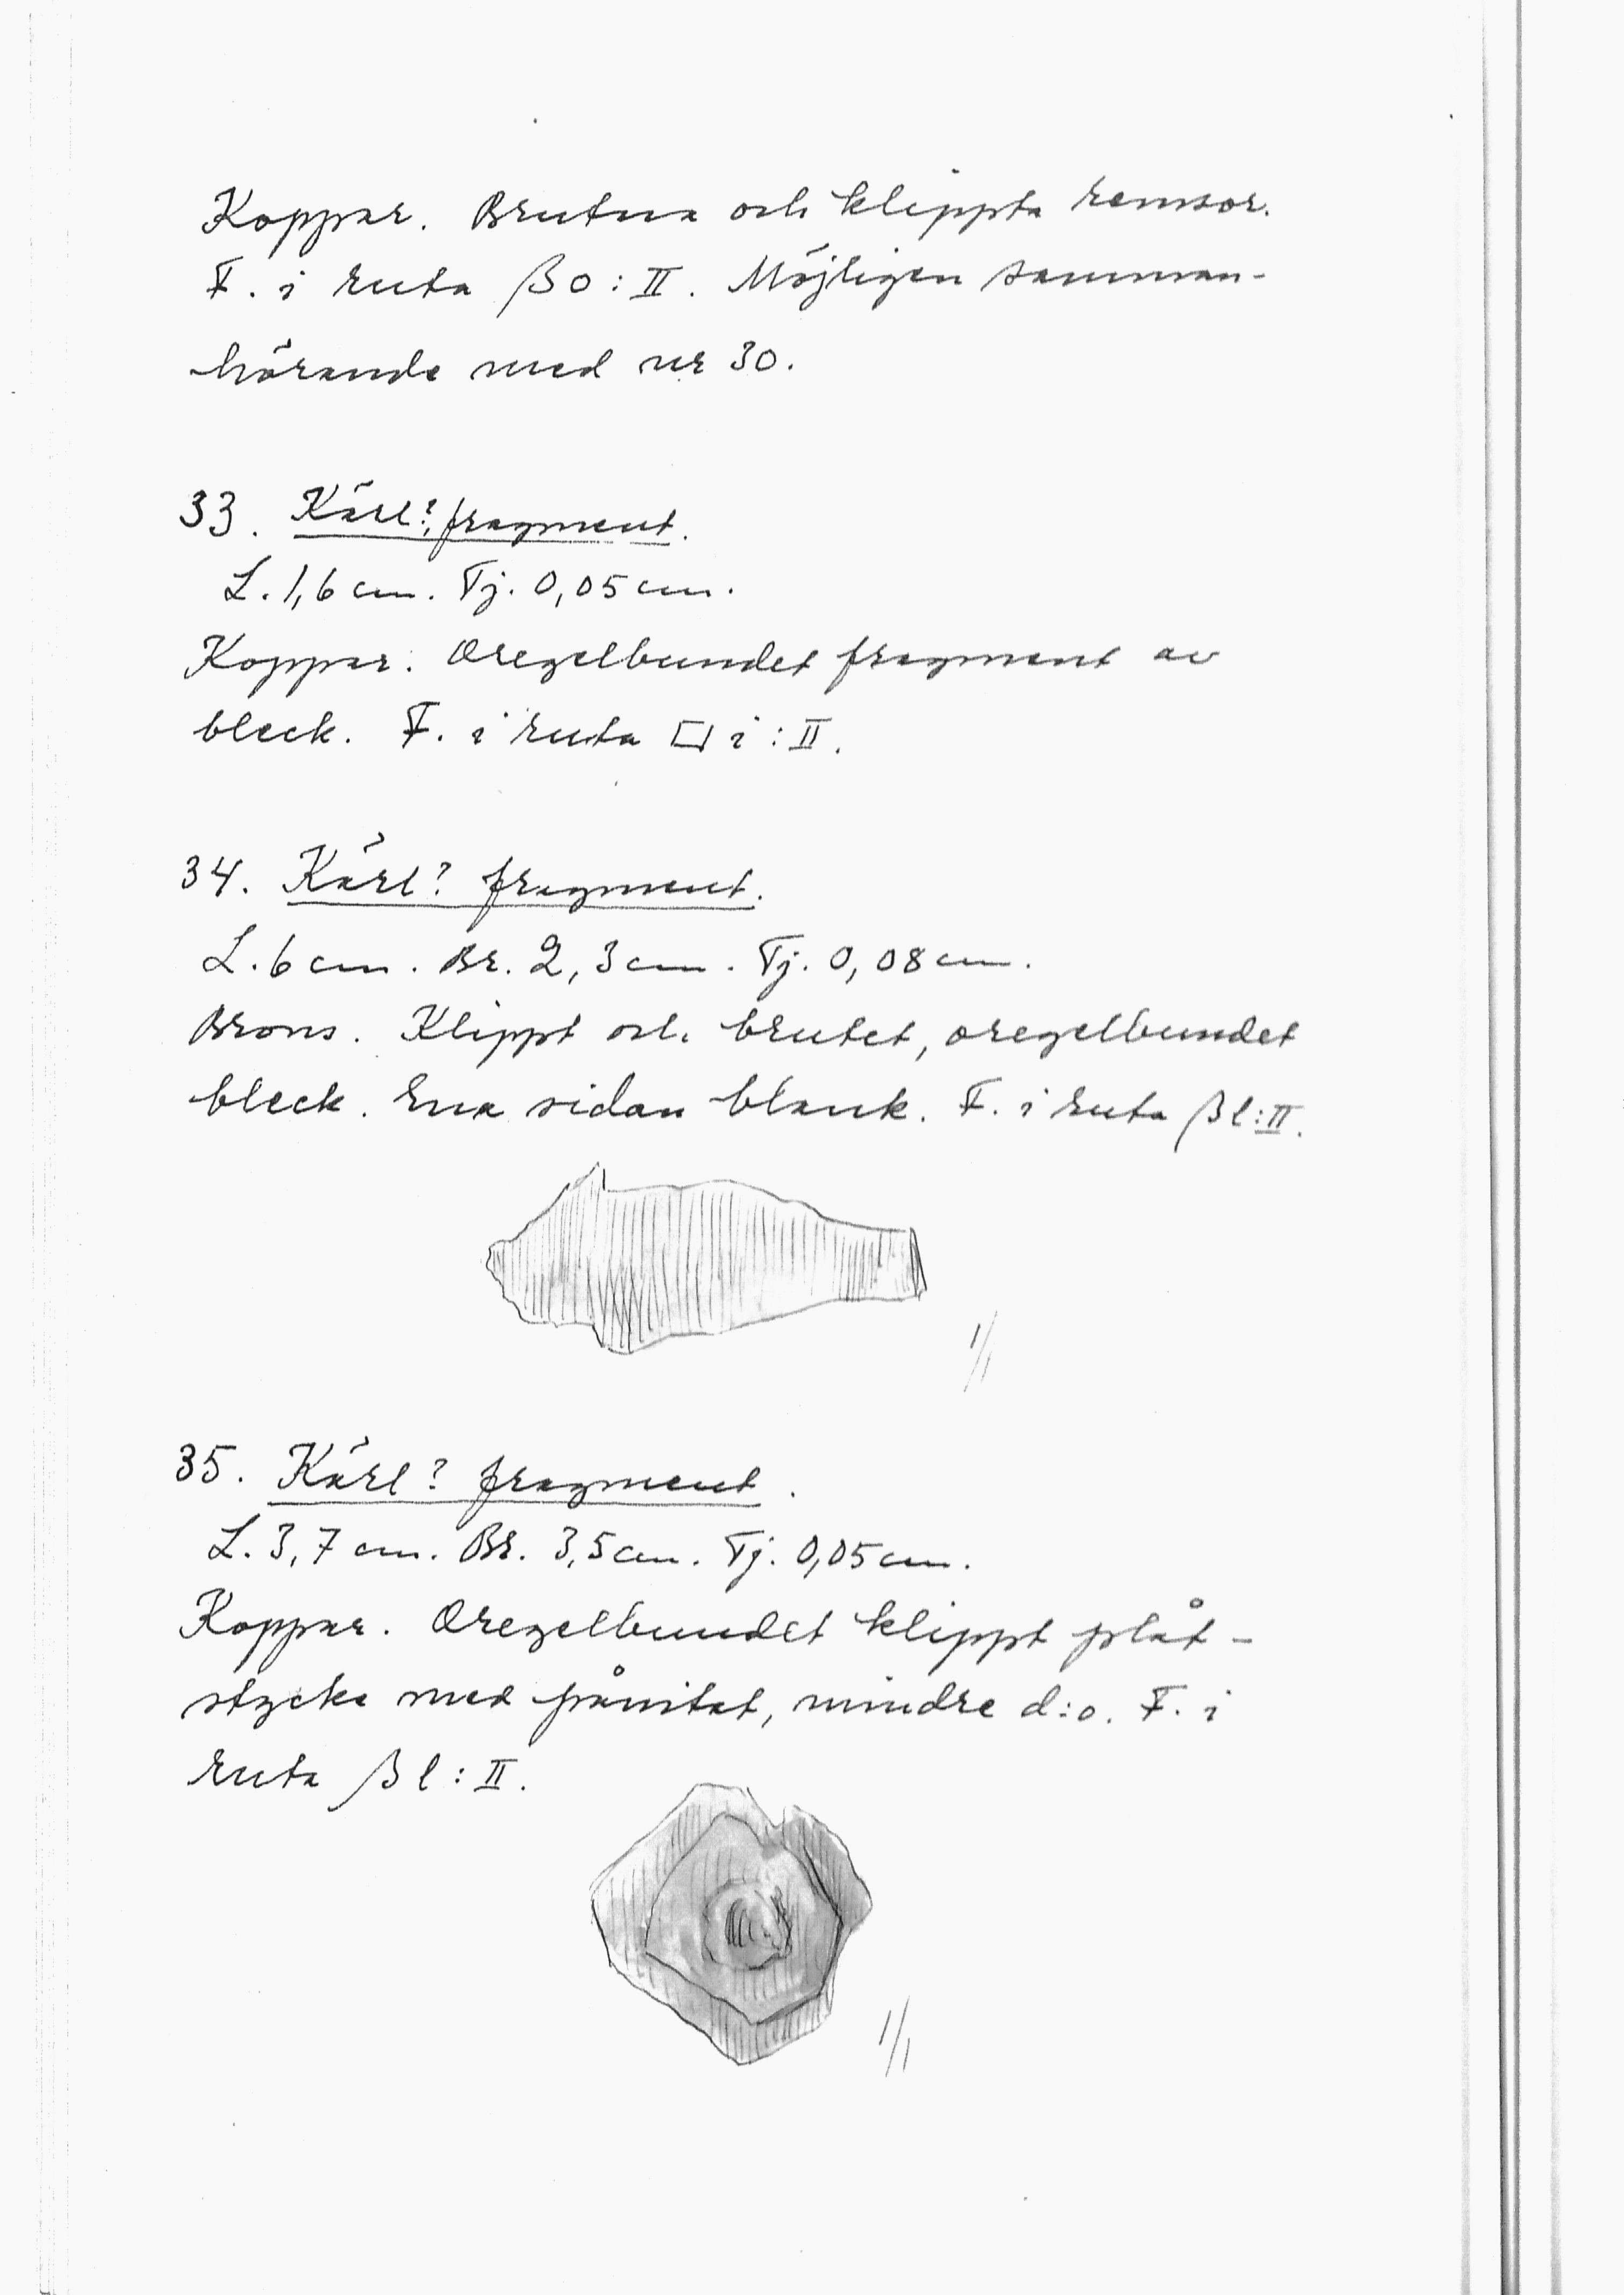 Koppar. Brutna och klippta remsor.
F. i ruta β o : II. Möjligen samman-
hörande med nr 30.
33. Kärl?, fragment.
L. 1,6 cm. Tj. 0,05 cm.
Koppar. Oregelbundet fragment av
bleck. F. i ruta □ i : II.
34. Kärl? fragment.
L. 6 cm. Br. 2,3 cm. Tj. 0,08 cm.
Brons. Klippt och brutet, oregelbundet
bleck. Ena sidan blank. F. i ruta β l : II.
1/1
35. Kärl? fragment.
L. 3,7 cm. Br. 3,5 cm. Tj. 0,05 cm.
Koppar. Oregelbundet klippt plåt-
stycke med pånitat, mindre d:o. F. i
ruta β l : II.
1/1